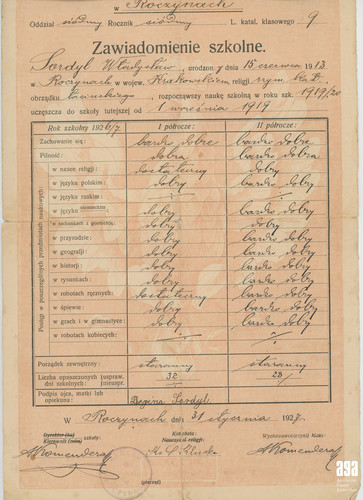 w Roczynach
Oddział siódmy Rocznik siódmy L. katal. klasowego 9
Zawiadomienie szkolne.
Sordyl Władysław, urodzony 15 czerwca 1913
w Roczynach w wojew. Krakowskiem, religji rzym. kat.
obrządku łacińskiego, rozpoczęty naukę szkolną w roku szk. 1919/20
uczęszcza do szkoły tutejszej od 1 września 1919
Rok szkolny 1926/7 I półrocze: II półrocze:
Zachowanie się: bardzo dobre bardzo dobre
Pilność: dobra bardzo dobra
Postęp w poszczególnych przedmiotach naukowych:
w nauce religji: dostateczny dobry
w języku polskim: dobry bardzo dobry
w języku ruskim:
w języku niemieckim dobry bardzo dobry
w rachunkach z geometrją: dobry dobry
w przyrodzie: dobry bardzo dobry
w geografji: dobry bardzo dobry
w historji: dobry bardzo dobry
w rysunkach: dobry bardzo dobry
w robotach ręcznych: dostateczny bardzo dobry
w śpiewie: dobry bardzo dobry
w grach i w gimnastyce: dobry bardzo dobry
w robotach kobiecych:
Porządek zewnętrzny: staranny staranny
Liczba opuszczonych uspraw. 32 28
dni szkolnych: nieuspr.
Podpis ojca, matki lub
opiekuna: Sordyl
W Roczynach dnia 31 stycznia 1927
Kierownik szkoły: Nauczyciel religji: Wychowawca klasy:
(pieczęć)